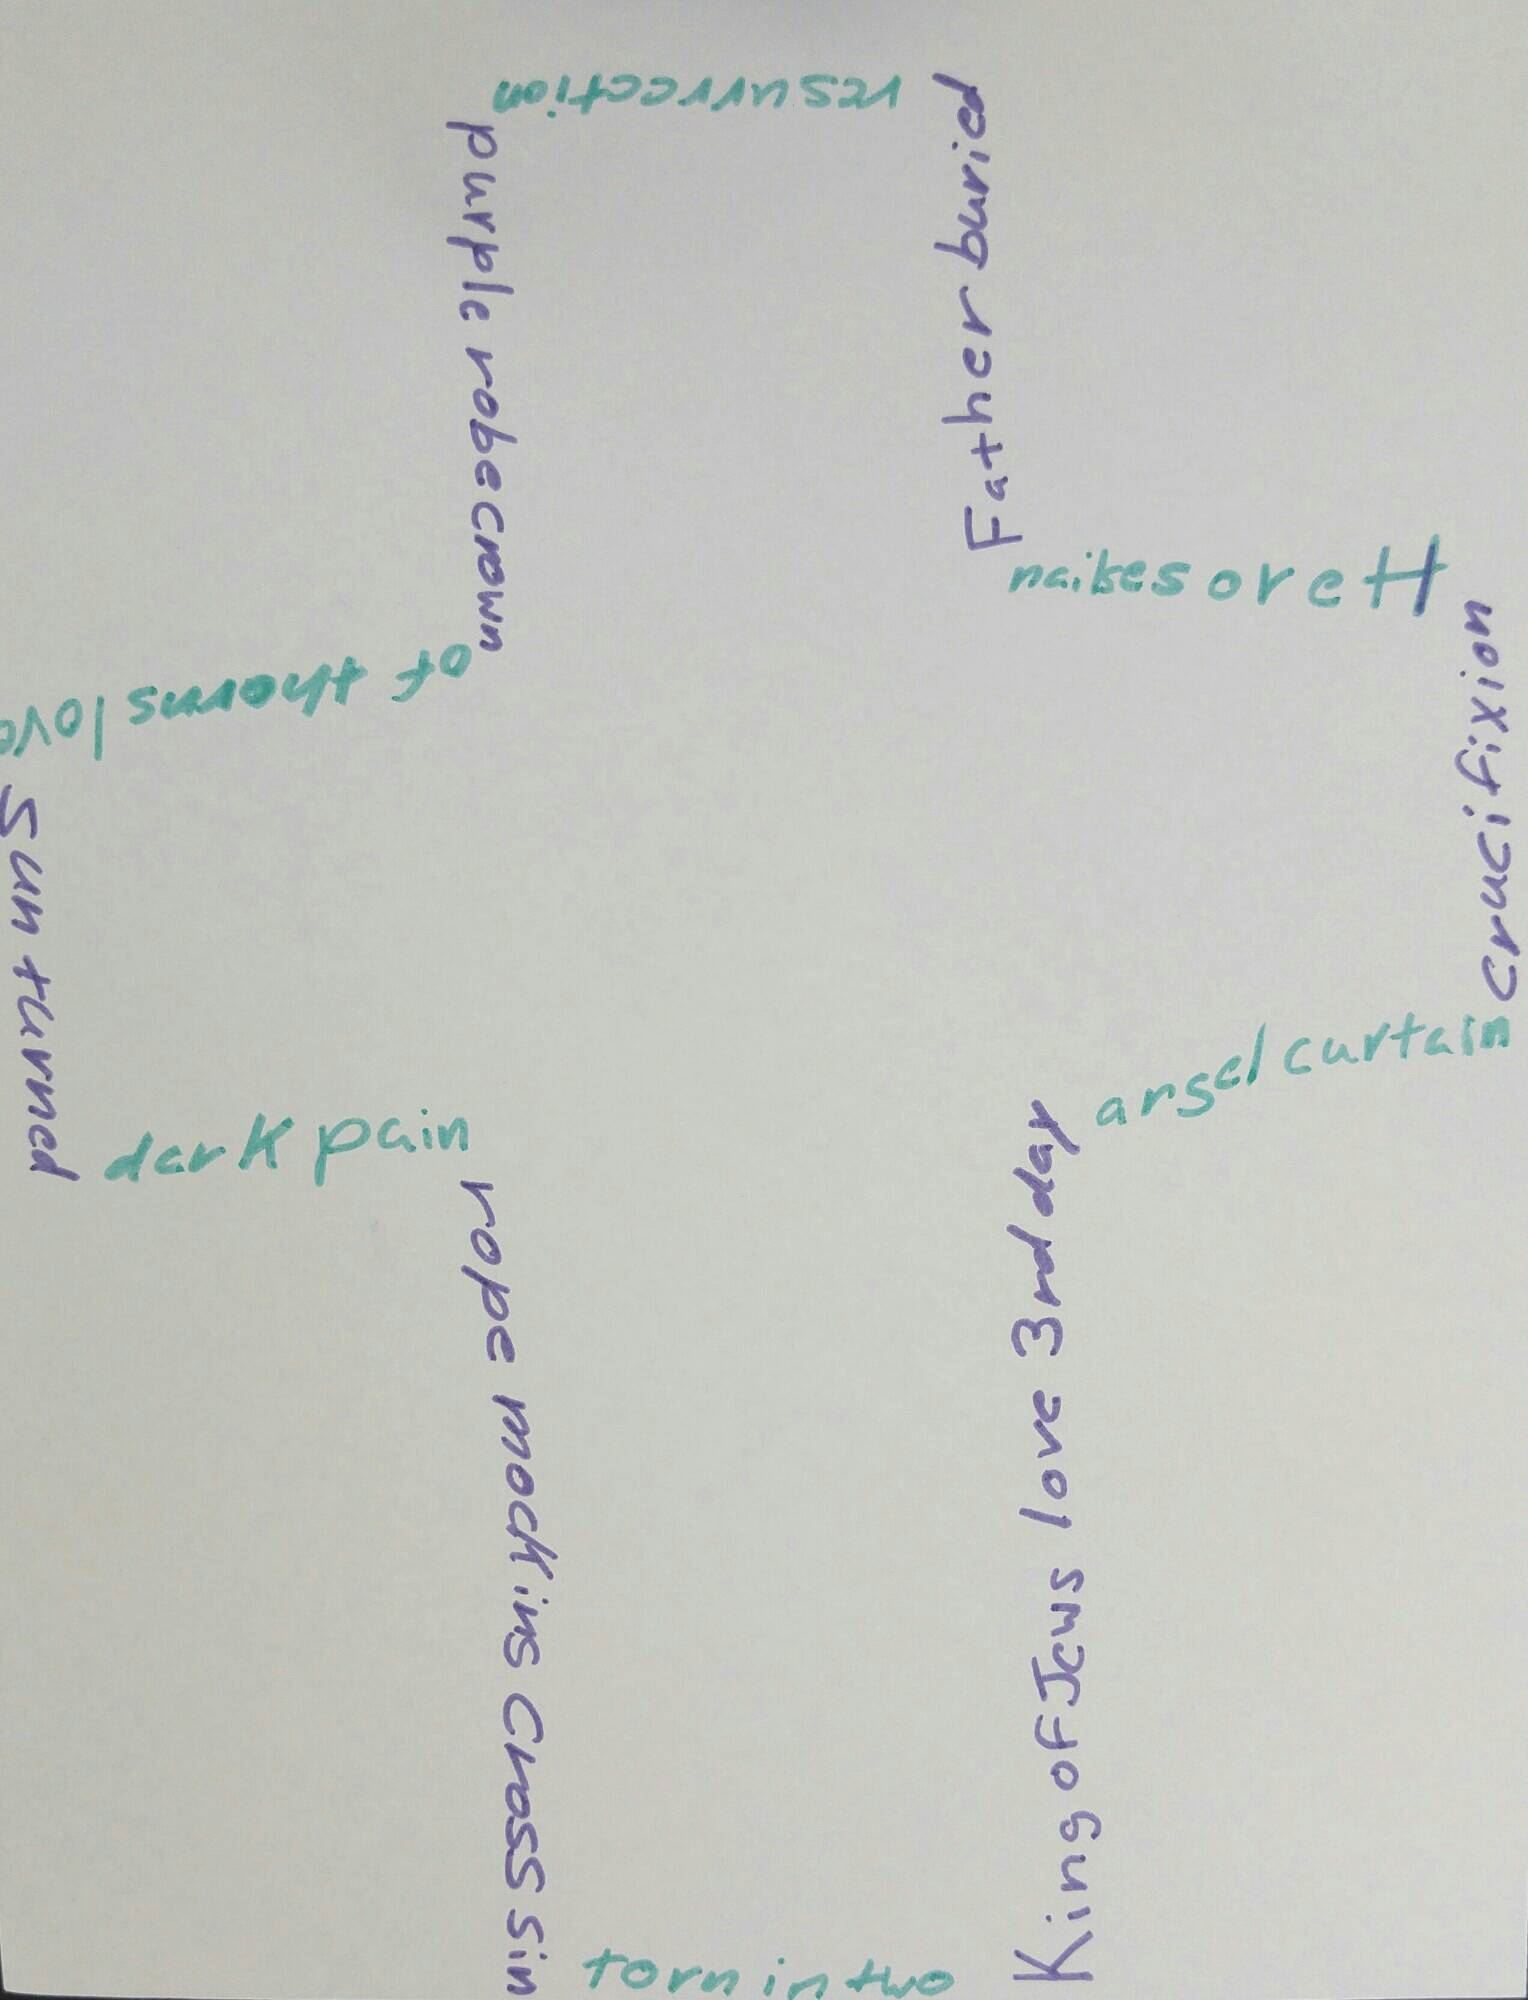 resurrection
purple robe crown
Father buried
of thorns love
crucifixion
Sun turned
angel curtain
dark pain
rope mocking cross sin
King of Jews love 3rd day
torn in two